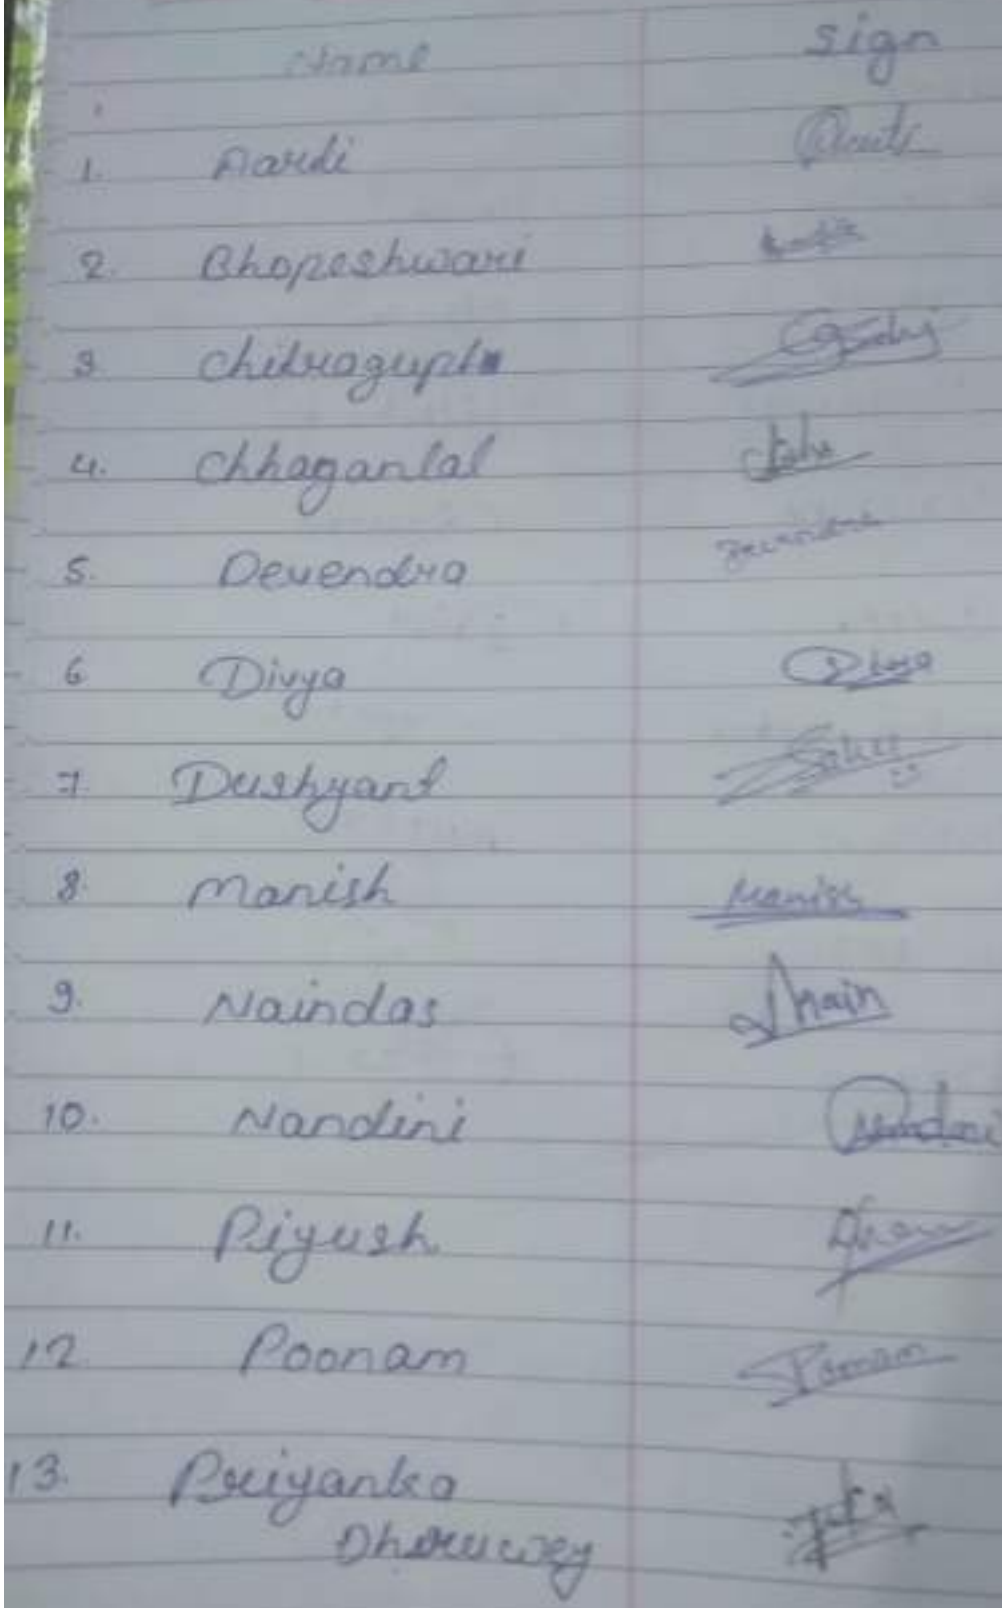 Name sign
1. Aardi
2. Bhopeshwari
3 Chitragupt
4. Chhaganlal
5. Devendra Devendra
6 Divya Divya
7. Dushyant Sahu
8. Manish Manish
9. Naindas Nain
10. Nandini Nandini
11. Piyush
12. Poonam Poonam
13. Priyanka
Dhruwey